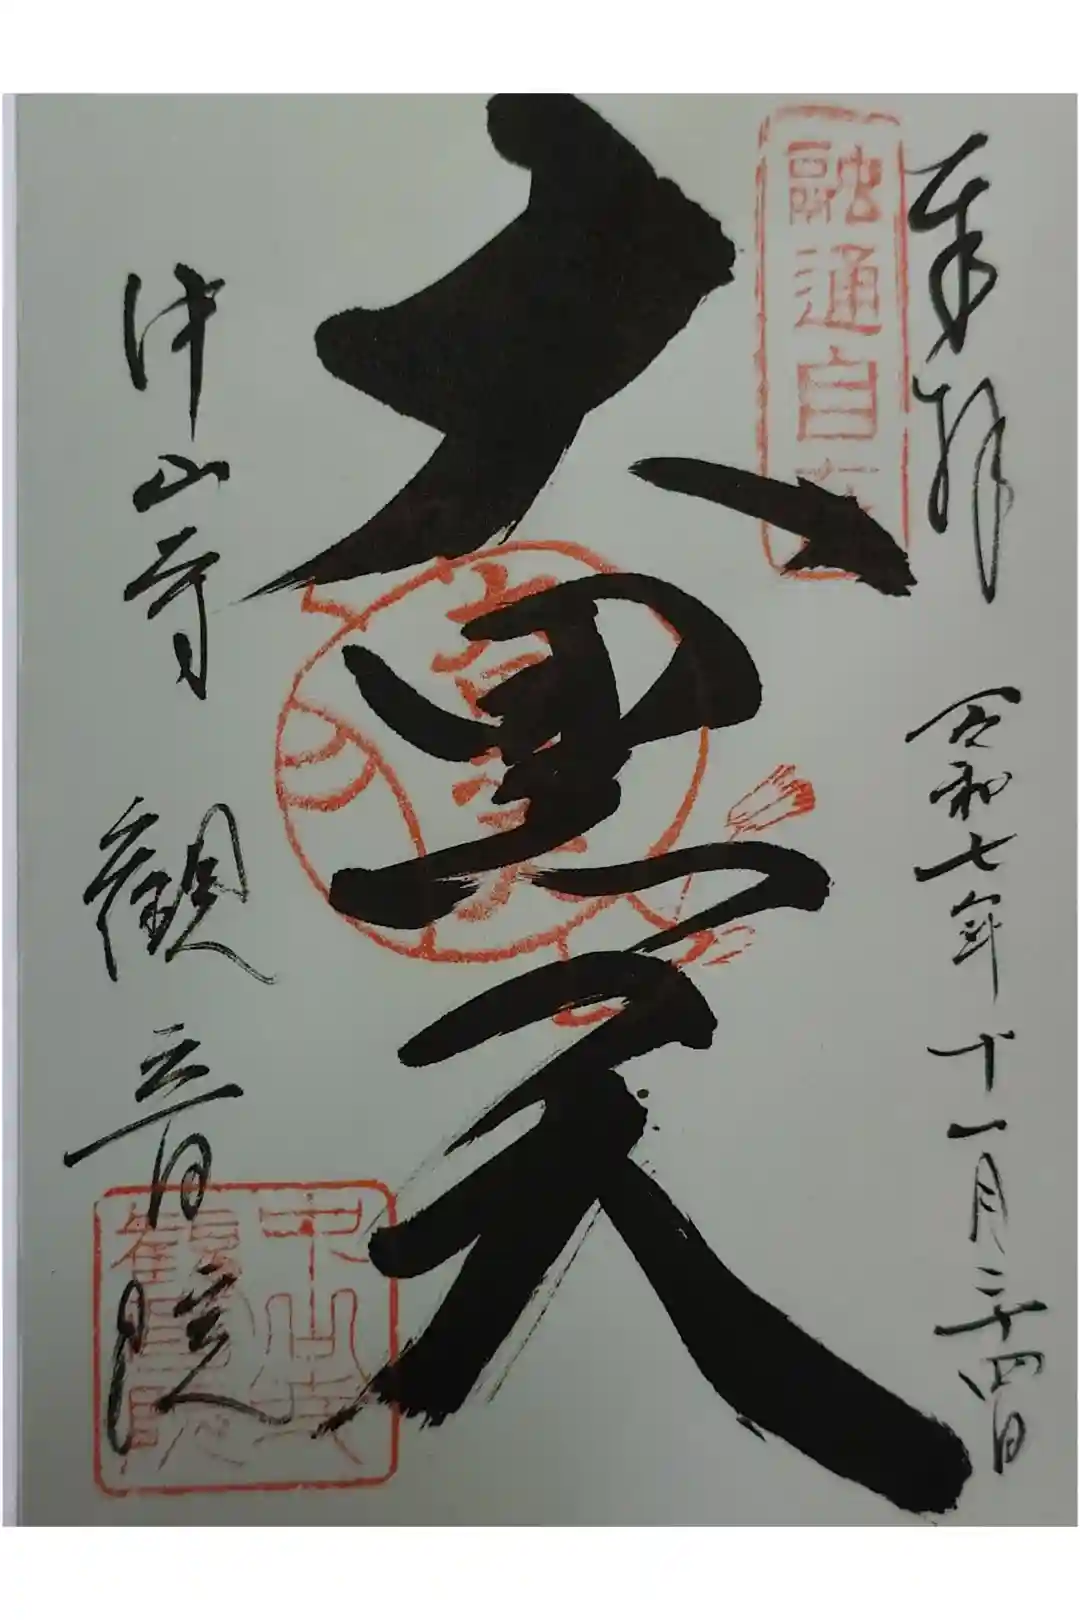 奉拝
令和七年十一月二十四日
融通自在
大黒天
中山寺 観音院
中山寺
観音院